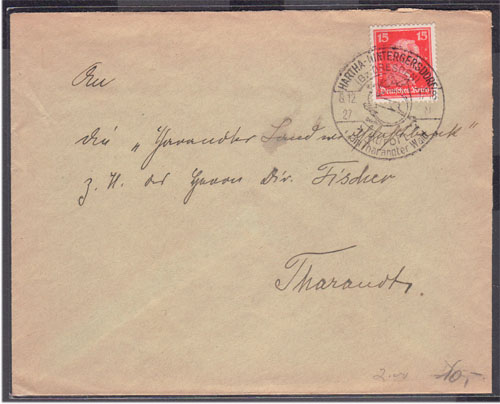 15 15
Deutsches Reich
HARTHA-HINTERGERSDORF
(Bz. DRESDEN)
8.12.
27
Kurort
im Tharandter Wald
An
die „Tharandter Land
z. H. des Herrn Dir. Fischer
Tharandt.
10,-